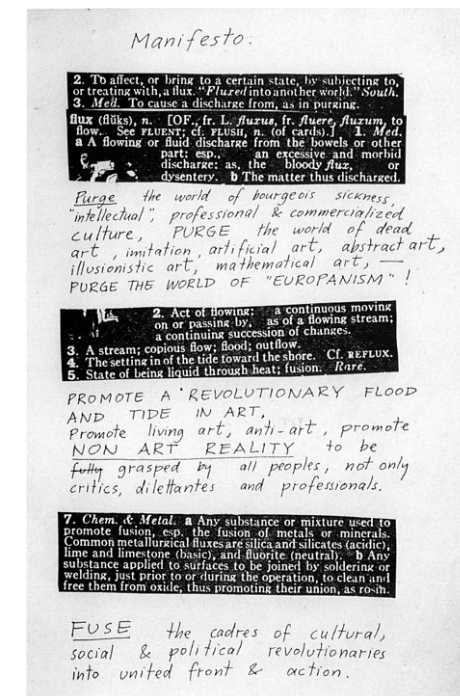 Manifesto.
2. To affect, or bring to a certain state, by subjecting to,
or treating with, a flux. "Fluxed into another world." South.
3. Med. To cause a discharge from, as in purging.
flux (flŭks), n. [OF., fr. L. fluxus, fr. fluere, fluxum, to
flow. See FLUENT; cf. FLUSH, n. (of cards).] 1. Med.
a A flowing or fluid discharge from the bowels or other
part; esp., an excessive and morbid
discharge: as, the bloody flux, or
dysentery. b The matter thus discharged.
Purge the world of bourgeois sickness,
"intellectual", professional & commercialized
culture, PURGE the world of dead
art, imitation, artificial art, abstract art,
illusionistic art, mathematical art, —
PURGE THE WORLD OF "EUROPANISM"!
2. Act of flowing: a continuous moving
on or passing by, as of a flowing stream;
a continuing succession of changes.
3. A stream; copious flow; flood; outflow.
4. The setting in of the tide toward the shore. Cf. REFLUX.
5. State of being liquid through heat; fusion. Rare.
PROMOTE A REVOLUTIONARY FLOOD
AND TIDE IN ART,
Promote living art, anti-art, promote
NON ART REALITY to be
fully grasped by all peoples, not only
critics, dilettantes and professionals.
7. Chem. & Metal. a Any substance or mixture used to
promote fusion, esp. the fusion of metals or minerals.
Common metallurgical fluxes are silica and silicates (acidic),
lime and limestone (basic), and fluorite (neutral). b Any
substance applied to surfaces to be joined by soldering or
welding, just prior to or during the operation, to clean and
free them from oxide, thus promoting their union, as rosin.
FUSE the cadres of cultural,
social & political revolutionaries
into united front & action.